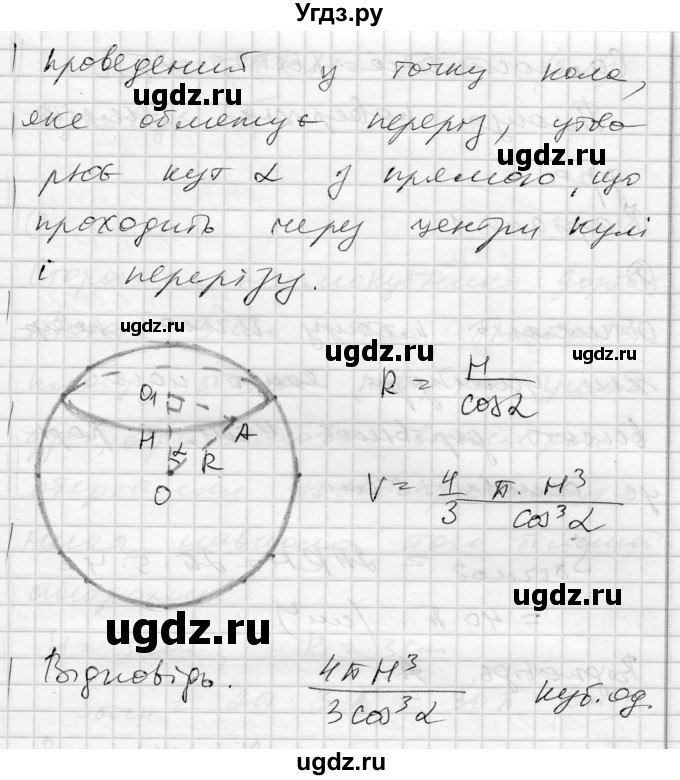 Угдз.ру
проведений у точку кола,
ugdz.ru
яке обмежує переріз, утво
ugdz.ru
рює кут α з прямою, що
проходить через центри кулі
і перерізу.
ugdz.ru
ugdz.ru
ugdz.ru
O₁
H
A
α
R
O
R = H / cos α
ugdz.ru
V = 4/3 π · H³ / cos³ α
ugdz.ru
ugdz.ru
Відповідь. 4πH³ / 3cos³ α куб. од.
ugdz.ru
ugdz.ru